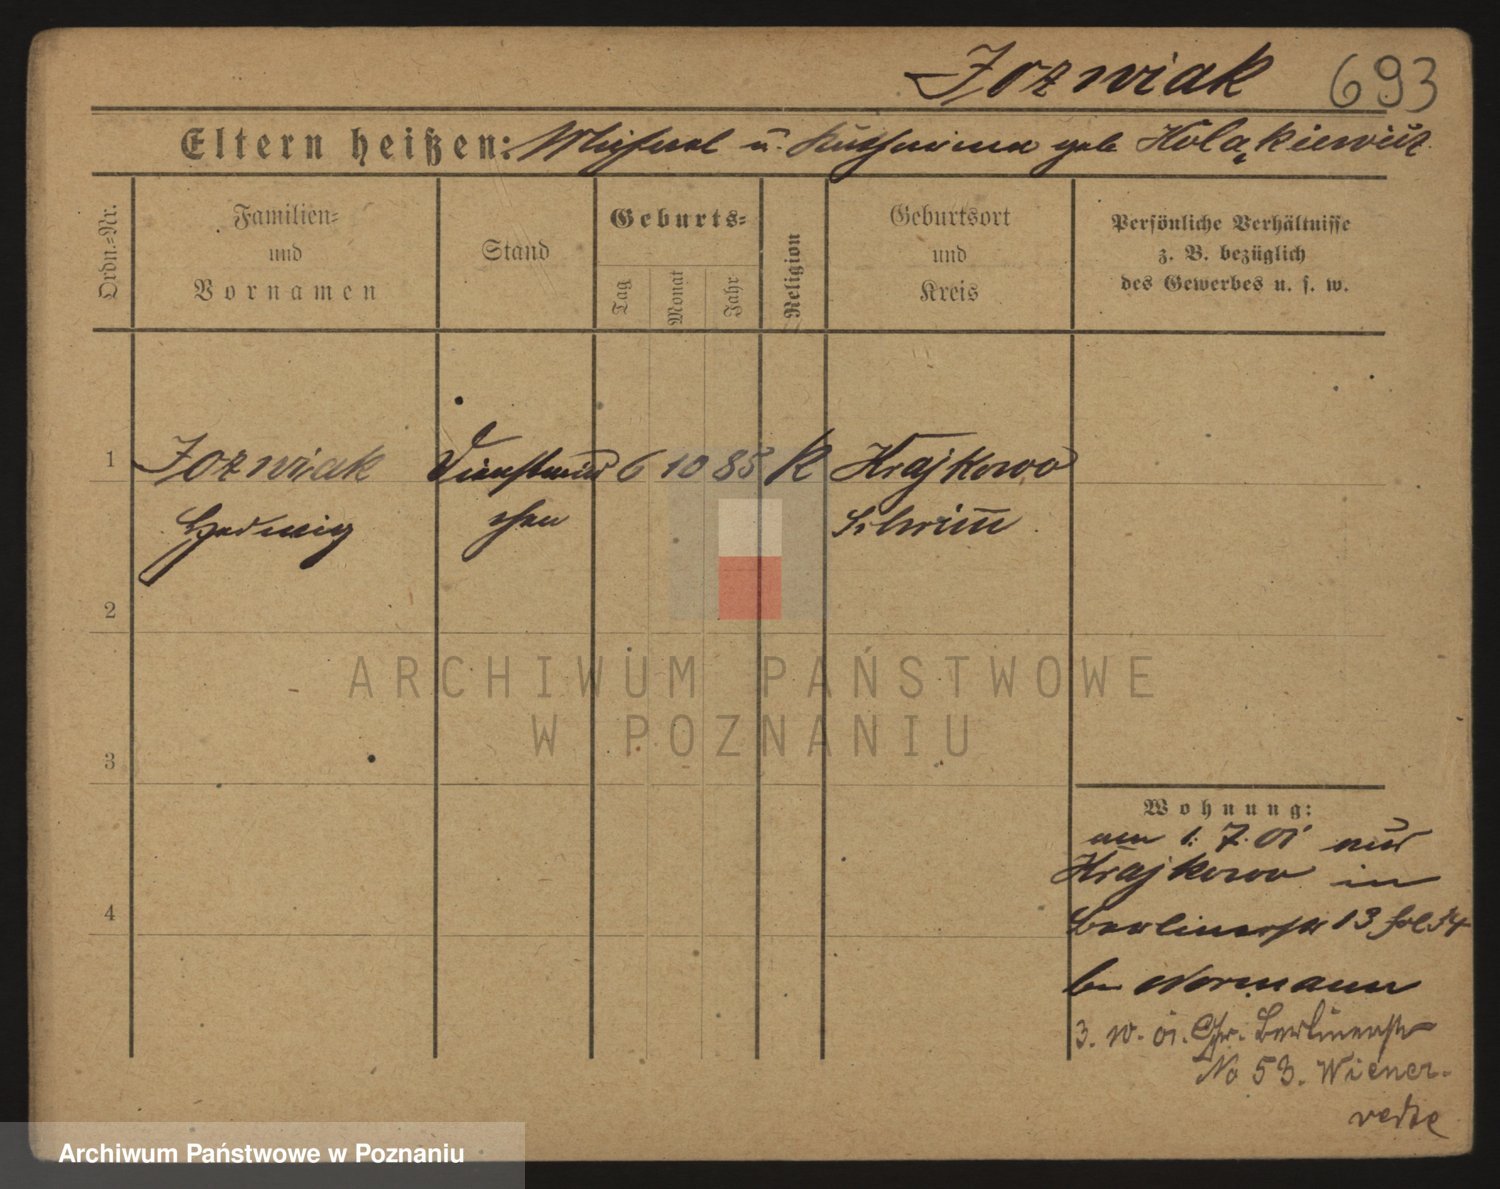 Jozwiak 693
Eltern heißen: Michael u. Katharina geb Holąkiewicz
Ordn.-Nr.
Familien-
und
Vornamen
Stand
Geburts-
Tag
Monat
Jahr
Religion
Geburtsort
und
Kreis
Persönliche Verhältnisse
z. B. bezüglich
des Gewerbes u. s. w.
1 Jozwiak Dienstmäd 6 10 85 K Krajkowo
Hedwig chen Schrim̅
2
3
4
Wohnung:
am 1. 7. 01 aus
Krajkowo in
Berlinerstr 13
bei Normann
3. 10. 01. Gr. Berlinerstr
No 53. Wiener-
ARCHIWUM PAŃSTWOWE
W POZNANIU
Archiwum Państwowe w Poznaniu